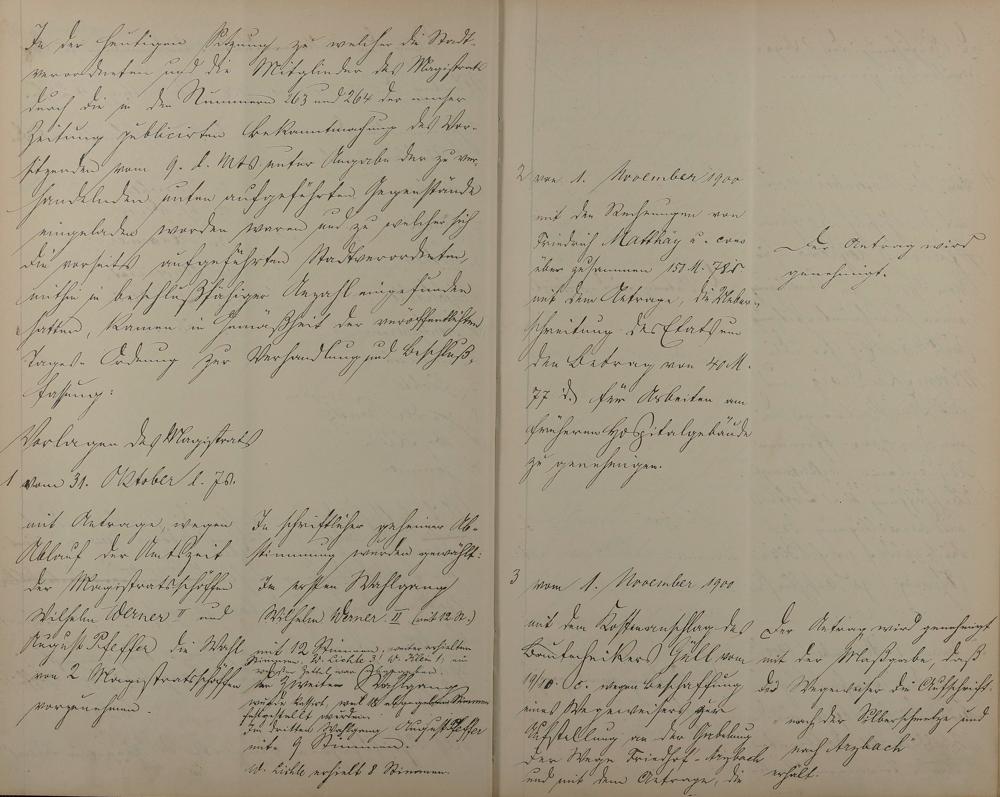 In der heutigen Sitzung, zu welcher die Stadt-
verordneten und die Mitglieder des Magistrats
durch die in den Nummern 263 und 264 der emser
Zeitung publicirten Bekanntmachung des Vor-
sitzenden vom 9. d. Mts unter Angabe der zu ver-
handelnden unten aufgeführten Gegenstände
eingeladen worden waren und zu welcher sich
die vorseits aufgeführten Stadtverordneten,
mithin in beschlußfähiger Anzahl eingefunden
hatten, kamen in Gemäßheit der veröffentlichten
Tages-Ordnung zur Verhandlung und Beschluß-
fassung:
Vorlagen des Magistrats
1 vom 31. Oktober l. Js.
mit Antrage, wegen
Ablauf der Amtszeit
der Magistratsschöffen
Wilhelm Werner II und
August Pfeffer die Wahl
von 2 Magistratsschöffen
vorzunehmen.
In schriftlicher geheimer Ab-
stimmung wurden gewählt:
Im ersten Wahlgang
Wilhelm Werner II (mit 12 St.)
mit 12 Stimmen, weiter erhielten
Stimmen W. Lickle 3,
der zweite Wahlgang
wurde kassirt, weil 18 abgegebene Stimmen
festgestellt wurden.
Im dritten Wahlgang August Pfeffer
mit 9 Stimmen.
W. Lickle erhielt 8 Stimmen.
2 von 1. November 1900
mit den Rechnungen von
Friedrich Matthäy u. cons
über zusammen 151 M. 78 d
mit dem Antrage, die Ueber-
schreitung des Etats um
den Betrag von 40 M.
77 d. für Arbeiten am
früheren Hospitalgebäude
zu genehmigen.
Der Antrag wird
genehmigt.
3 vom 1. November 1900
mit dem Kostenanschlag des
Bautechnikers Güll vom
19/10. c. wegen Beschaffung
eines Wegweisers zur
Aufstellung an der Gabelung
der Wege Friedhof-Arzbach
und mit dem Antrage, die
Der Antrag wird genehmigt
mit der Maßgabe, daß
der Wegweiser die Aufschrift
"nach der Silberschmelze und
nach Arzbach"
erhält.